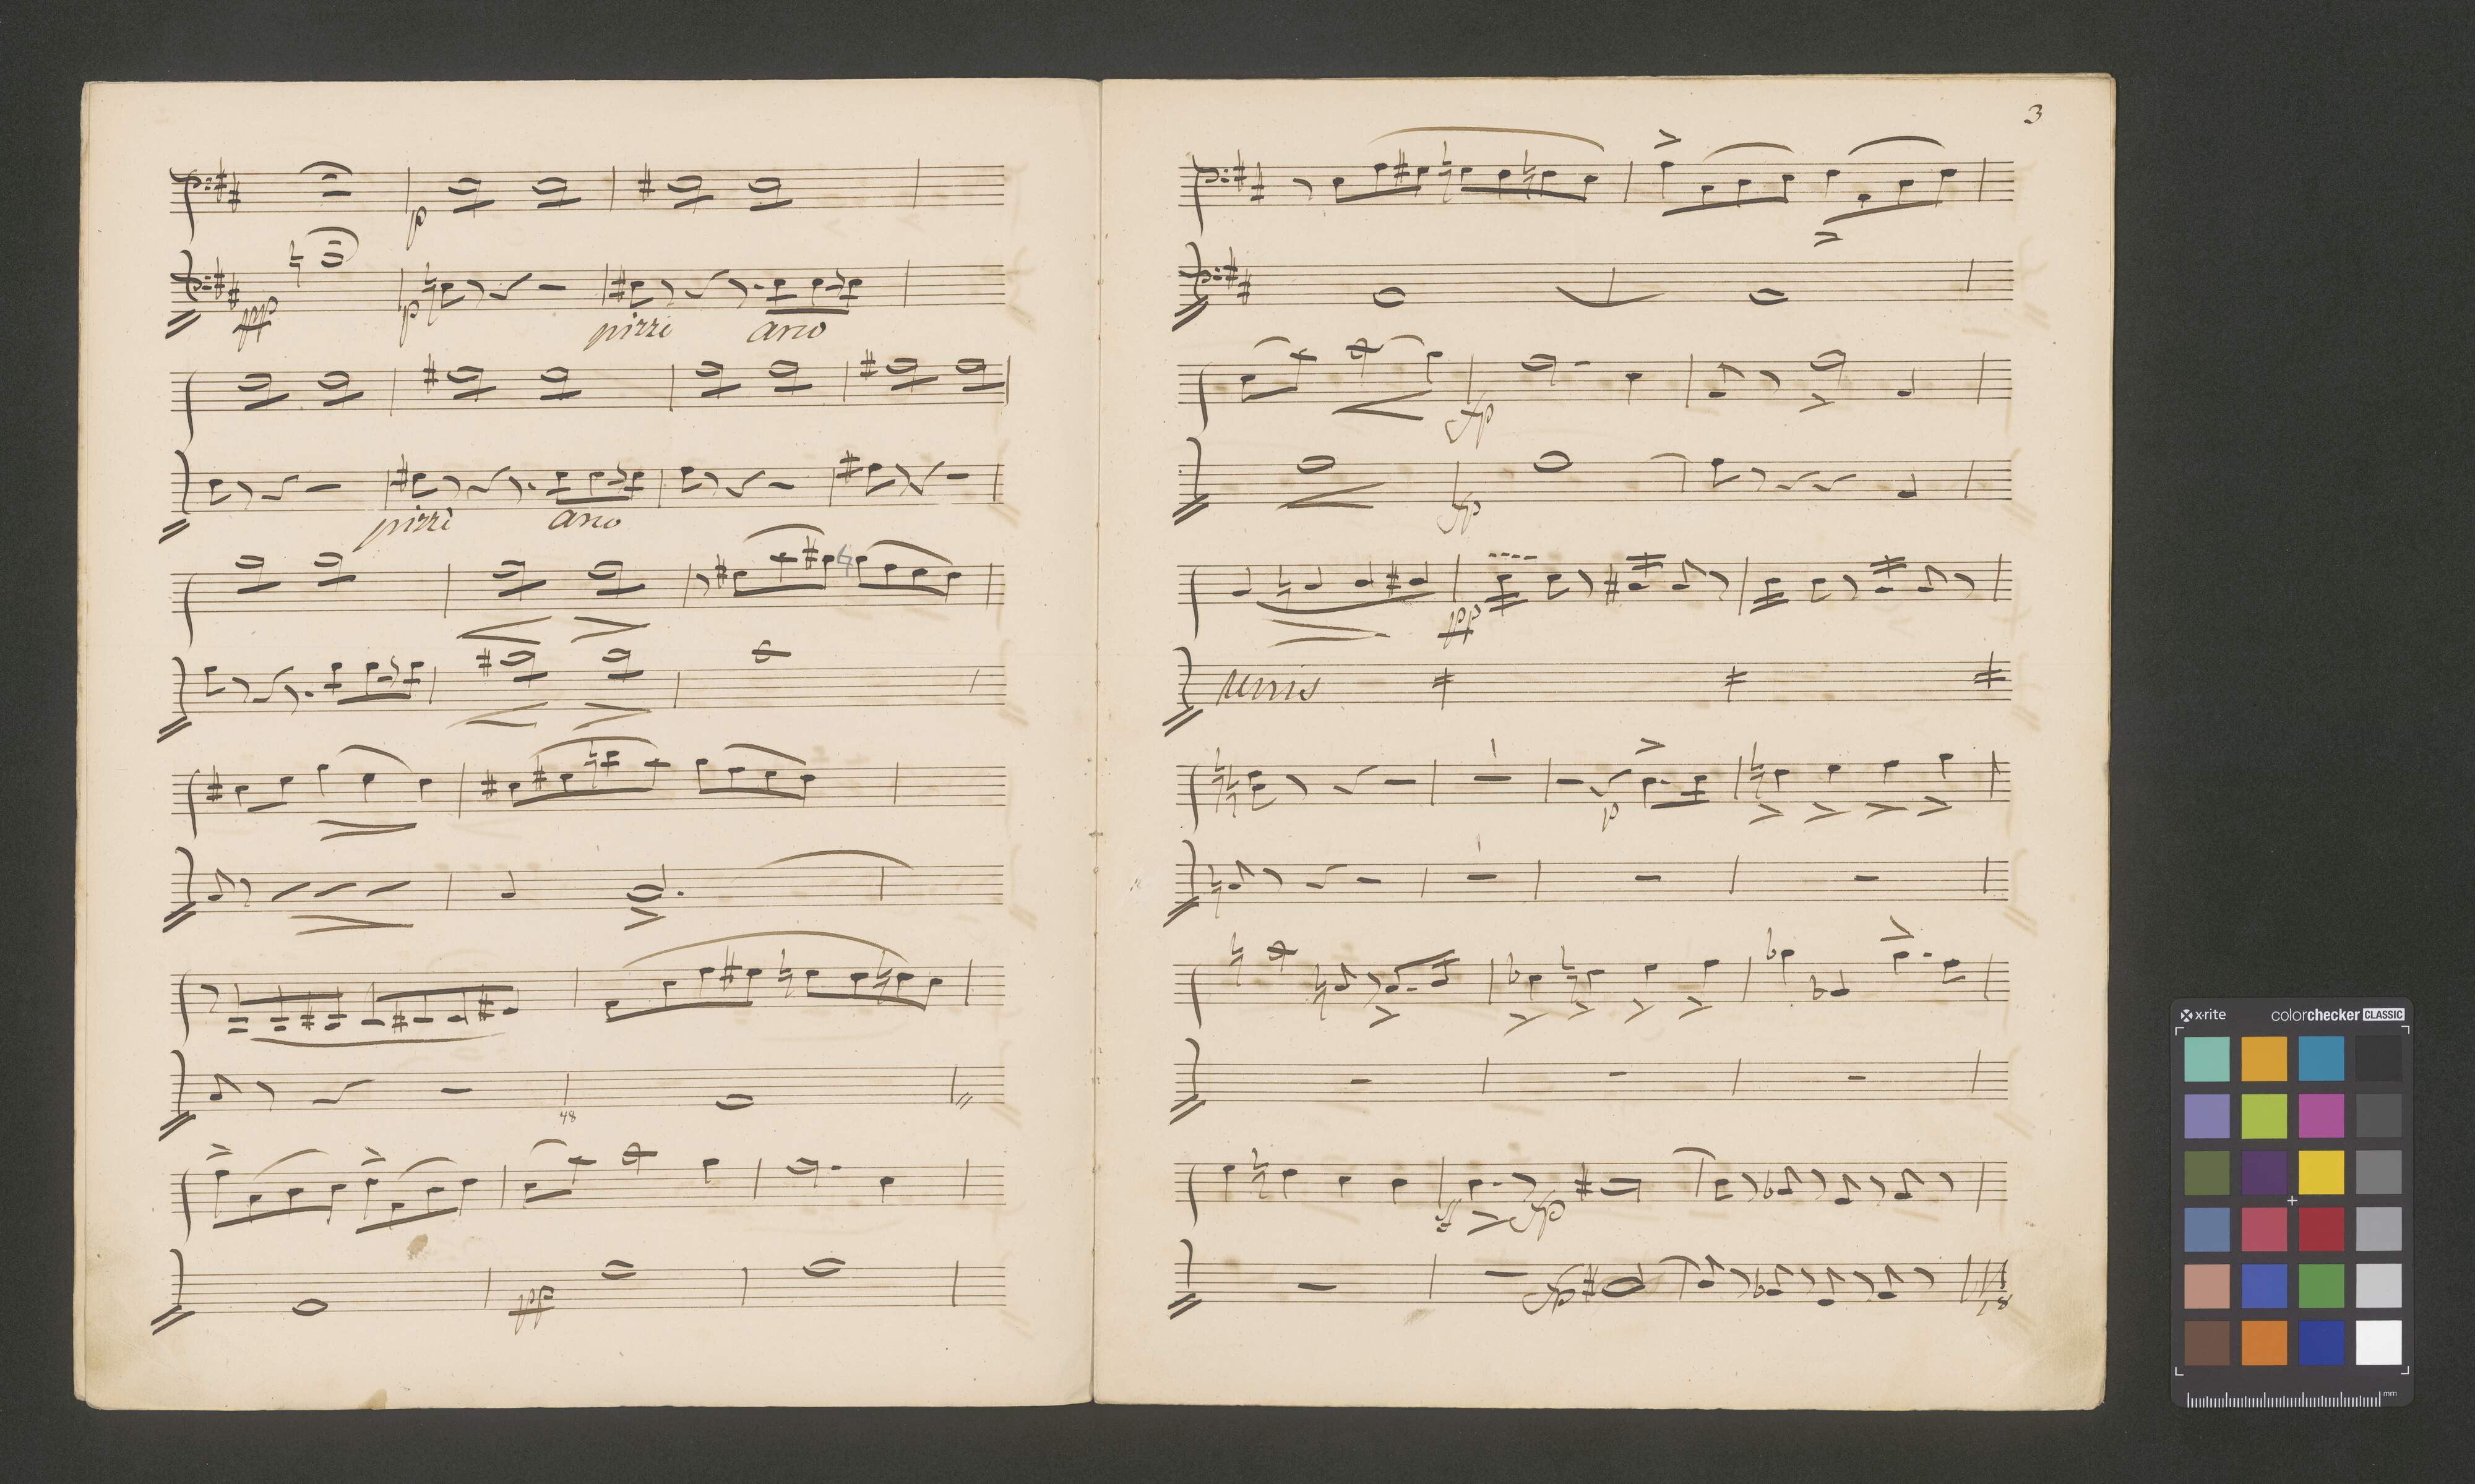 p
ppp p
pizzi arco
pizzi arco
48
pp
3
fp
fp
pp
unis
p
fp
fp
18
x-rite colorchecker CLASSIC
mm